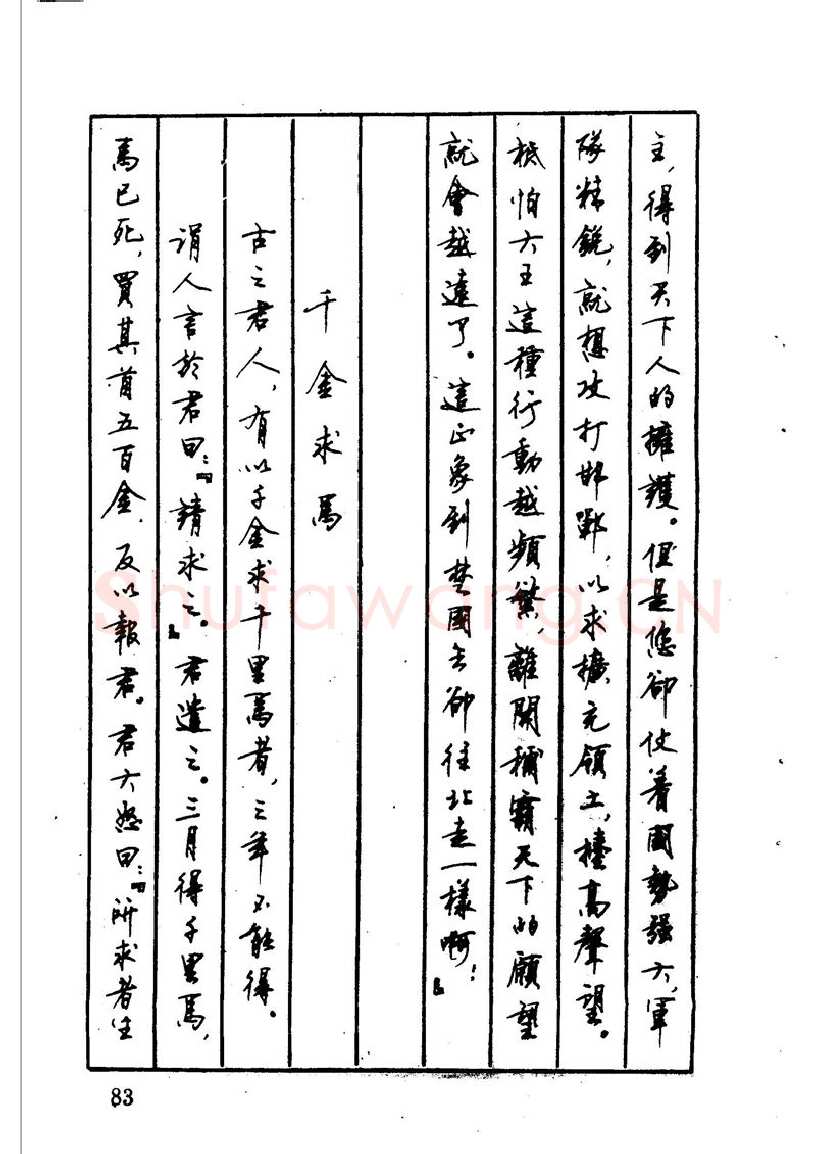 主，得到天下人的擁護。但是您卻仗着國勢强大，軍
隊精鋭，就想攻打邯鄲，以求擴充領土，擡高聲望。
祗怕大王這種行動越頻繁，離開稱霸天下的願望
就會越遠了。這正象到楚國去卻往北走一樣啊！』
千金求馬
古之君人，有以千金求千里馬者，三年不能得。
涓人言於君曰：『請求之。』君遣之。三月得千里馬，
馬已死，買其首五百金，反以報君。君大怒曰：『所求者生
83
Shufawang.CN